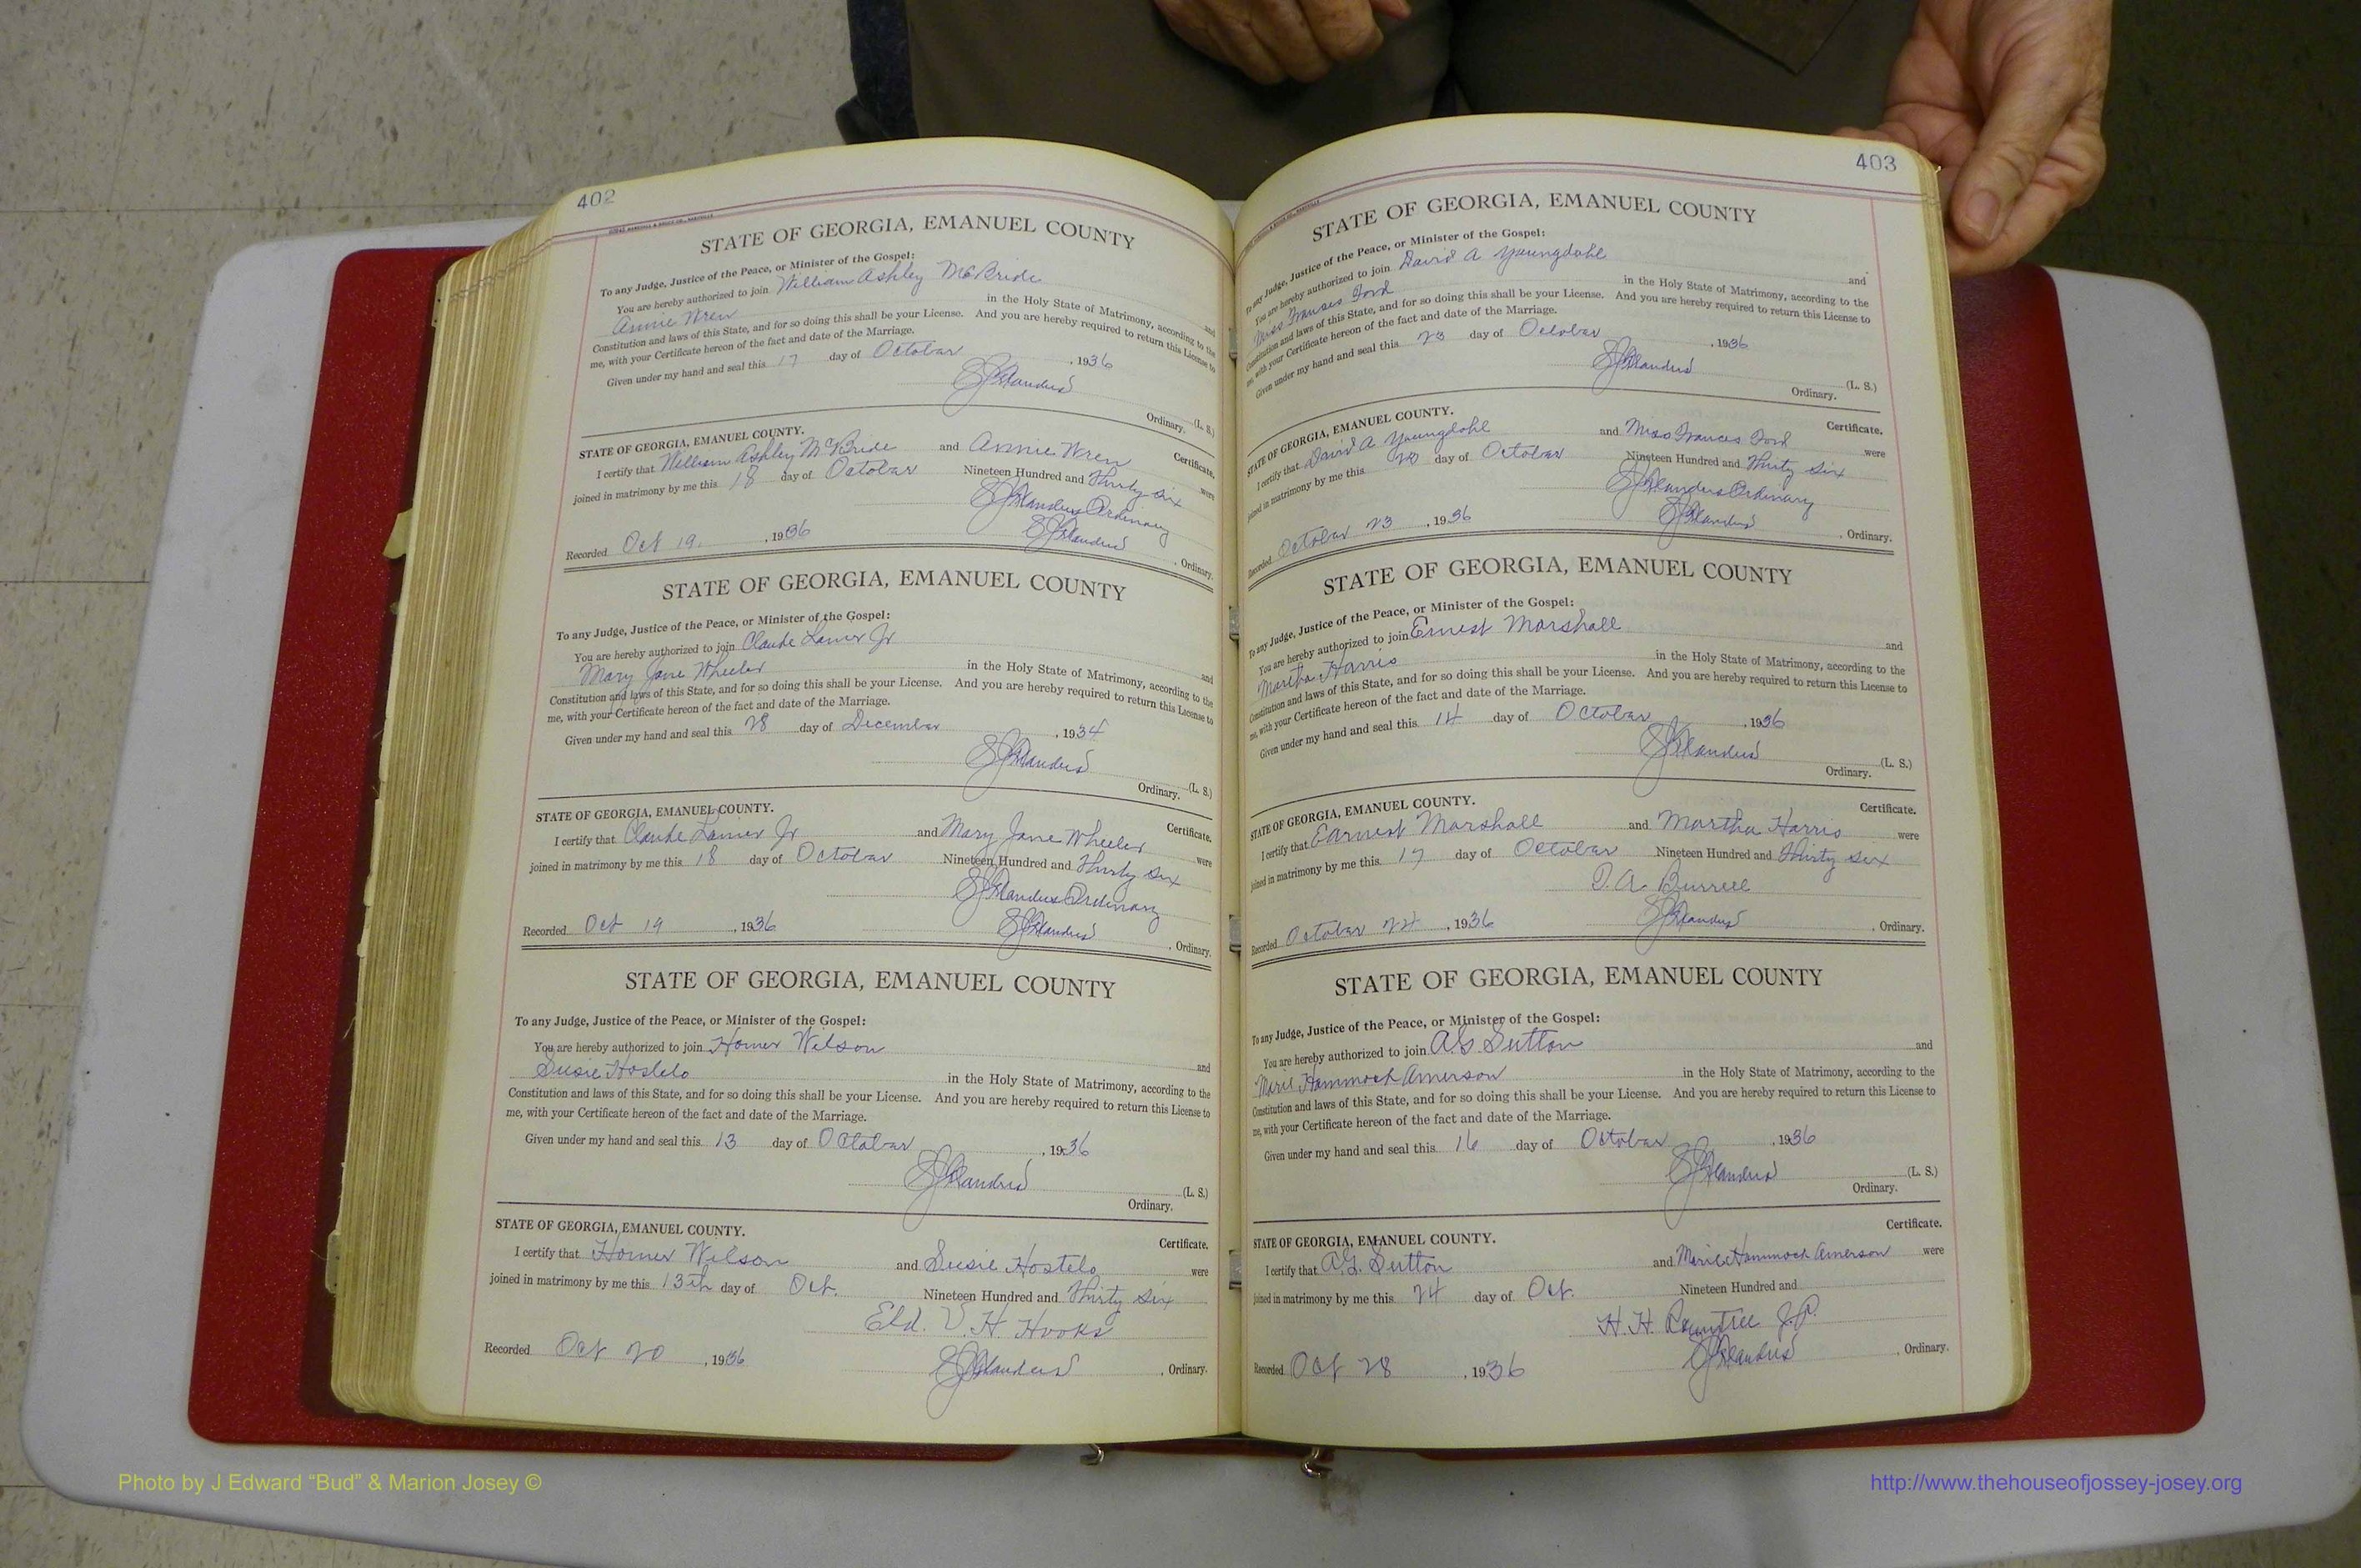 402
STATE OF GEORGIA, EMANUEL COUNTY
To any Judge, Justice of the Peace, or Minister of the Gospel:
You are hereby authorized to join William Ashley McBride and
Annie Wren in the Holy State of Matrimony, according to the
Constitution and laws of this State, and for so doing this shall be your License. And you are hereby required to return this License to
me, with your Certificate hereon of the fact and date of the Marriage.
Given under my hand and seal this 17 day of October, 1936
(L. S.)
Ordinary.
STATE OF GEORGIA, EMANUEL COUNTY. Certificate.
I certify that William Ashley McBride and Annie Wren were
joined in matrimony by me this 18 day of October Nineteen Hundred and Thirty Six
Ordinary
Recorded Oct 19, 1936, Ordinary.
STATE OF GEORGIA, EMANUEL COUNTY
To any Judge, Justice of the Peace, or Minister of the Gospel:
You are hereby authorized to join Claude Lanier Jr and
Mary Jane Wheeler in the Holy State of Matrimony, according to the
Constitution and laws of this State, and for so doing this shall be your License. And you are hereby required to return this License to
me, with your Certificate hereon of the fact and date of the Marriage.
Given under my hand and seal this 28 day of December, 1934
(L. S.)
Ordinary.
STATE OF GEORGIA, EMANUEL COUNTY. Certificate.
I certify that Claude Lanier Jr and Mary Jane Wheeler were
joined in matrimony by me this 18 day of October Nineteen Hundred and Thirty Six
Ordinary
Recorded Oct 19, 1936, Ordinary.
STATE OF GEORGIA, EMANUEL COUNTY
To any Judge, Justice of the Peace, or Minister of the Gospel:
You are hereby authorized to join Homer Wilson and
Susie Hostelo in the Holy State of Matrimony, according to the
Constitution and laws of this State, and for so doing this shall be your License. And you are hereby required to return this License to
me, with your Certificate hereon of the fact and date of the Marriage.
Given under my hand and seal this 13 day of October, 1936
(L. S.)
Ordinary.
STATE OF GEORGIA, EMANUEL COUNTY. Certificate.
I certify that Homer Wilson and Susie Hostelo were
joined in matrimony by me this 13th day of Oct. Nineteen Hundred and Thirty Six
Eld. V. H. Hooks
Recorded Oct 20, 1936, Ordinary.
403
STATE OF GEORGIA, EMANUEL COUNTY
To any Judge, Justice of the Peace, or Minister of the Gospel:
You are hereby authorized to join David A Youngdahl and
Miss Franses Ford in the Holy State of Matrimony, according to the
Constitution and laws of this State, and for so doing this shall be your License. And you are hereby required to return this License to
me, with your Certificate hereon of the fact and date of the Marriage.
Given under my hand and seal this 23 day of October, 1936
(L. S.)
Ordinary.
STATE OF GEORGIA, EMANUEL COUNTY. Certificate.
I certify that David A Youngdahl and Miss Frances Ford were
joined in matrimony by me this day of October Nineteen Hundred and Thirty Six
Ordinary
Recorded October 23, 1936, Ordinary.
STATE OF GEORGIA, EMANUEL COUNTY
To any Judge, Justice of the Peace, or Minister of the Gospel:
You are hereby authorized to join Ernest Marshall and
Martha Harris in the Holy State of Matrimony, according to the
Constitution and laws of this State, and for so doing this shall be your License. And you are hereby required to return this License to
me, with your Certificate hereon of the fact and date of the Marriage.
Given under my hand and seal this 14 day of October, 1936
(L. S.)
Ordinary.
STATE OF GEORGIA, EMANUEL COUNTY. Certificate.
I certify that Earnest Marshall and Martha Harris were
joined in matrimony by me this 17 day of October Nineteen Hundred and Thirty Six
Burrell
Recorded October 24, 1936, Ordinary.
STATE OF GEORGIA, EMANUEL COUNTY
To any Judge, Justice of the Peace, or Minister of the Gospel:
You are hereby authorized to join A.G. Sutton and
Marie Hammock Amerson in the Holy State of Matrimony, according to the
Constitution and laws of this State, and for so doing this shall be your License. And you are hereby required to return this License to
me, with your Certificate hereon of the fact and date of the Marriage.
Given under my hand and seal this 16 day of October, 1936
(L. S.)
Ordinary.
STATE OF GEORGIA, EMANUEL COUNTY. Certificate.
I certify that A.G. Sutton and Marie Hammock Amerson were
joined in matrimony by me this 24 day of Oct. Nineteen Hundred and
H. H. Rountree J.P.
Recorded Oct 28, 1936, Ordinary.
Photo by J Edward “Bud” & Marion Josey ©
http://www.thehouseofjossey-josey.org